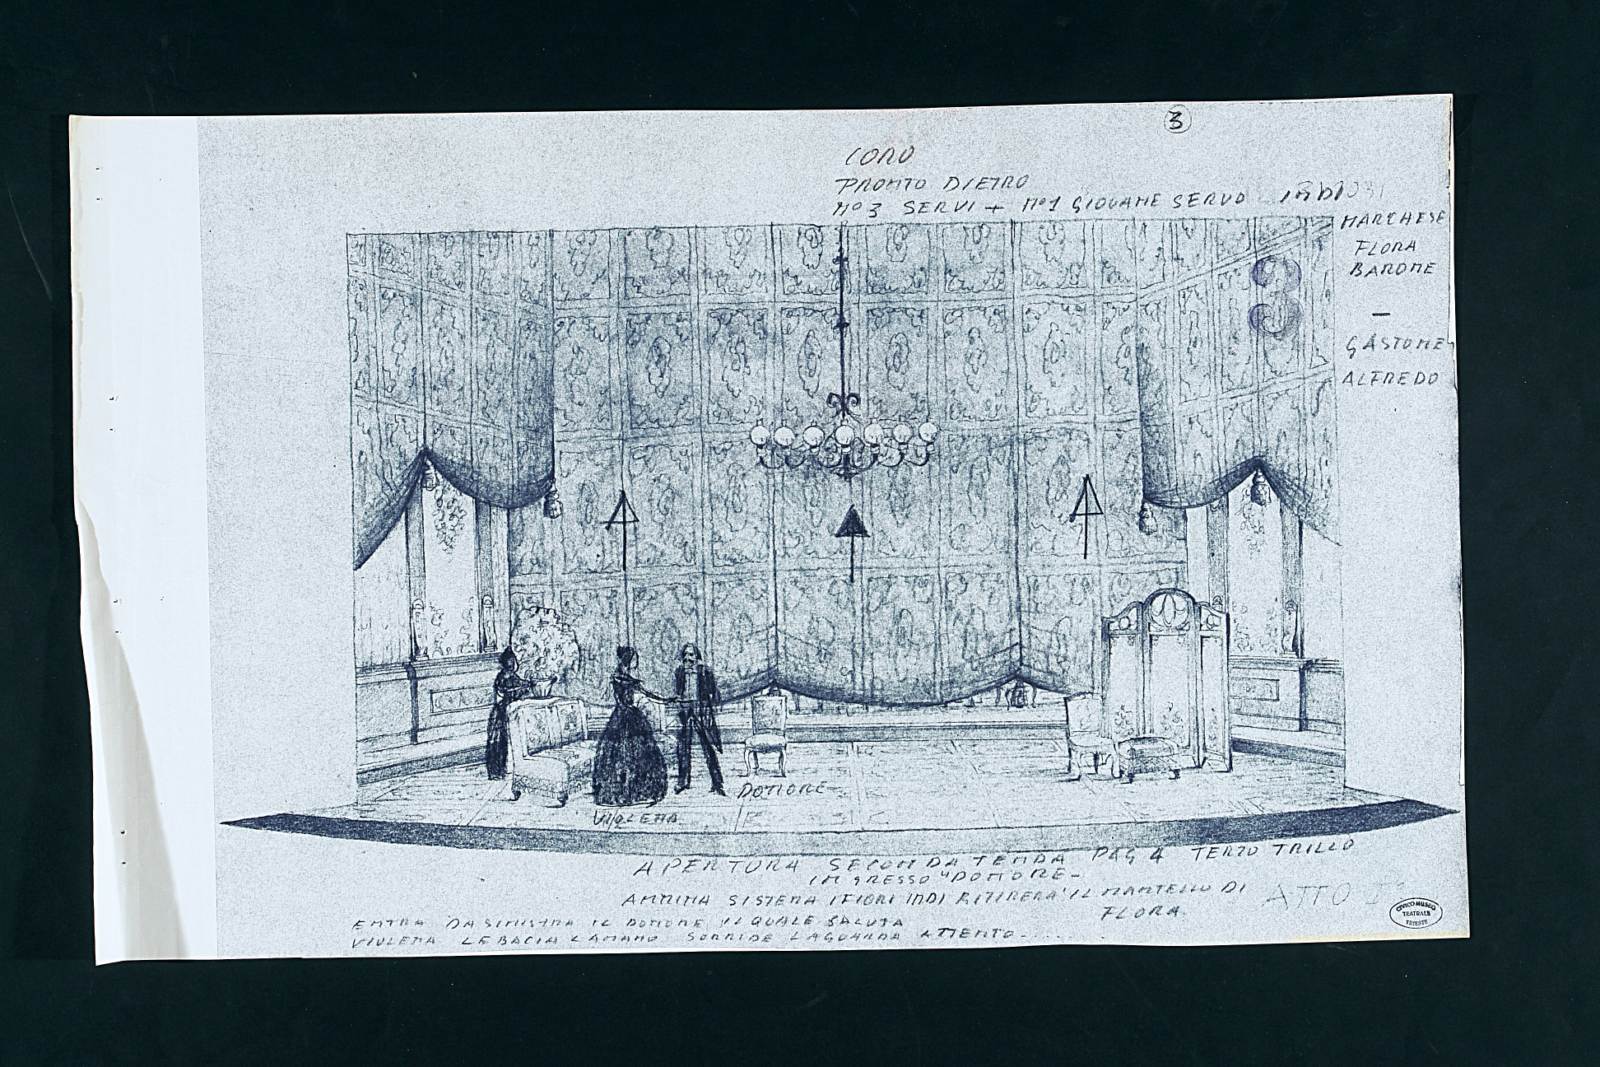 3
CORO
PRONTO DIETRO
No 3 SERVI + No 1 GIOVANE SERVO INDI
MARCHESE
FLORA
BARONE
3
—
GASTONE
ALFREDO
DOTTORE
VIOLETTA
APERTURA SECONDA TENDA PAG 4 TERZO TRILLO
INGRESSO "DOTTORE-
ANNINA SISTEMA I FIORI INDI RITIRERA' IL MANTELLO DI
FLORA
ATTO I°
ENTRA DA SINISTRA IL DOTTORE IL QUALE SALUTA
VIOLETTA LE BACIA LA MANO SORRIDE LA GUARDA ATTENTO....
CIVICO MUSEO
TEATRALE
TRIESTE